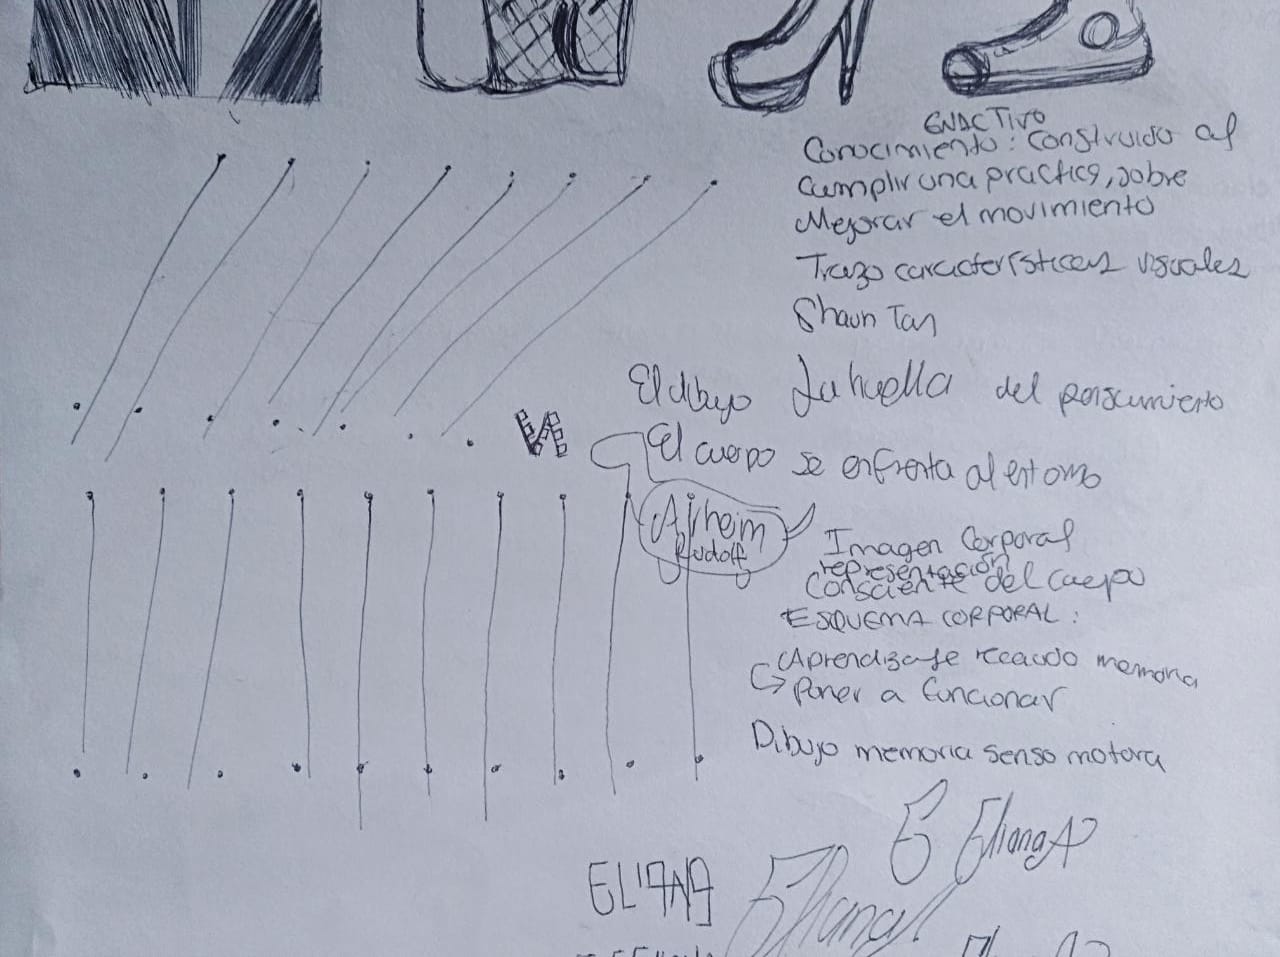 ENACTIVO
Conocimiento: Construido al
cumplir una practica, sobre
Mejorar el movimiento
Trazo características visuales
Shaun Tan
El dibujo La huella del pensamiento
El cuerpo se enfrenta al entorno
Arheim
Rudolf
Imagen Corporal
representación
consciente del cuerpo
ESQUEMA CORPORAL:
Aprendizaje memoria
Poner a funcionar
Dibujo memoria senso motora
E ElianaA
ELIANA
Eliana